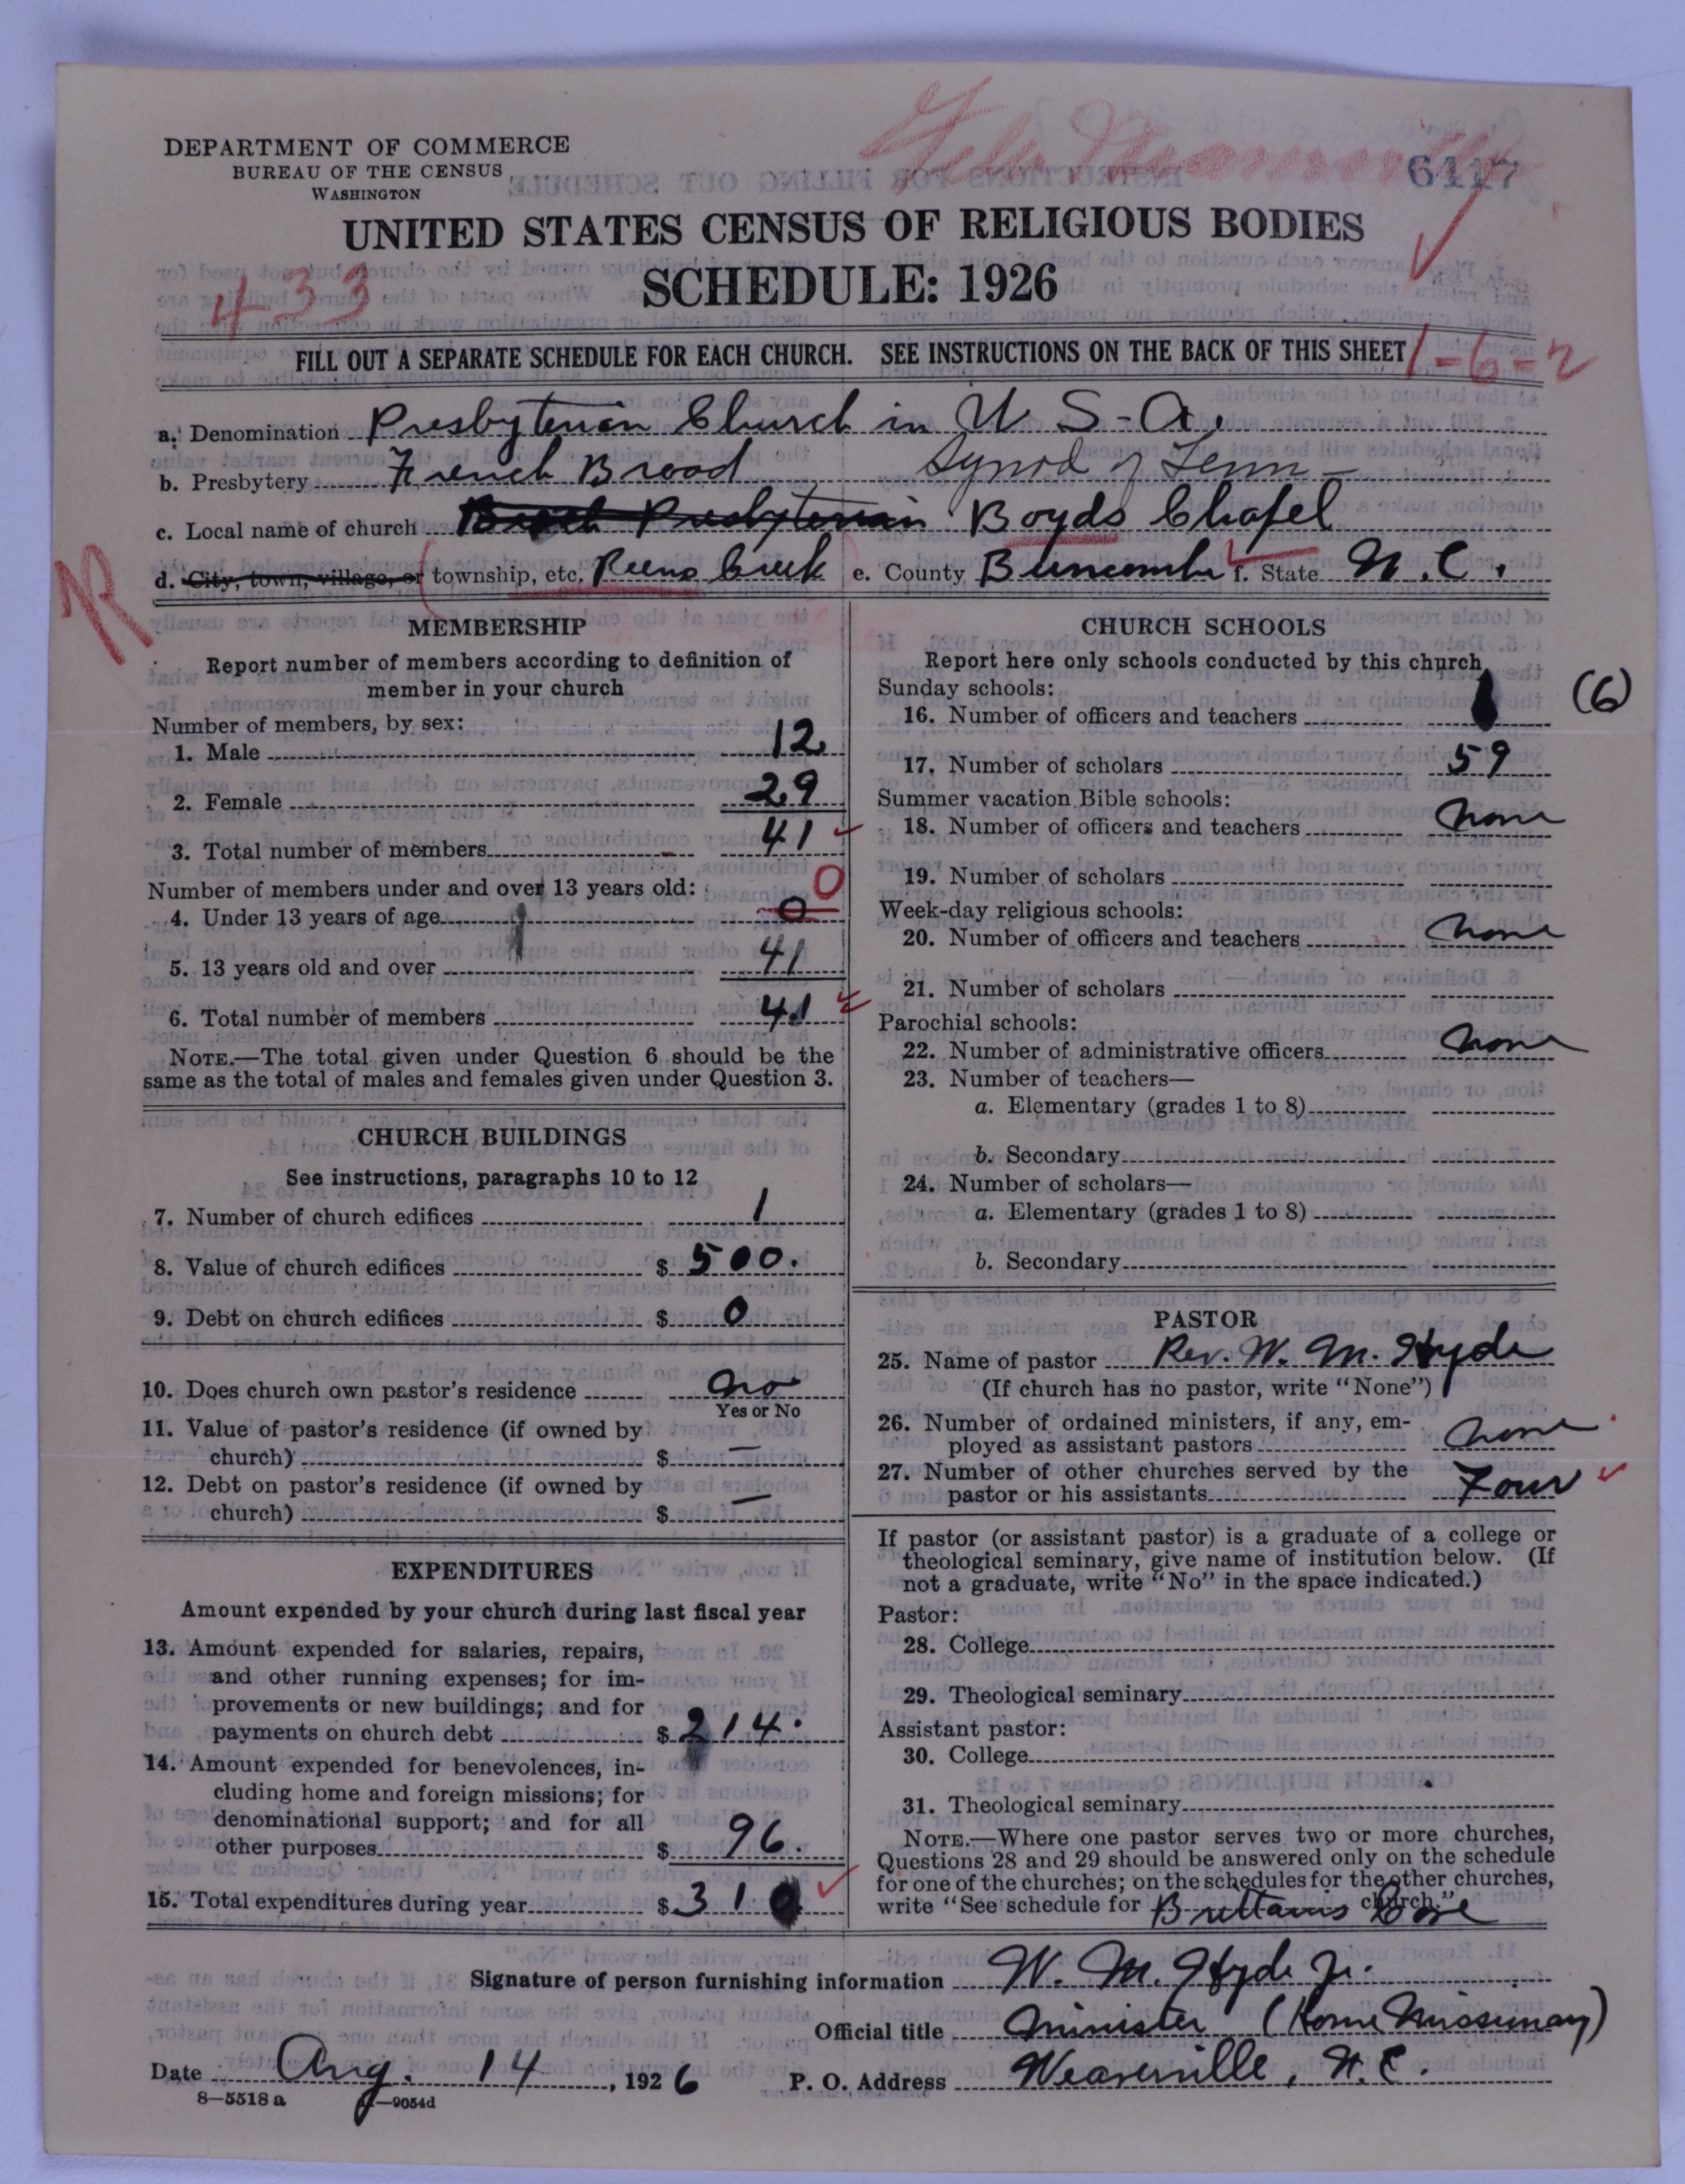 DEPARTMENT OF COMMERCE
BUREAU OF THE CENSUS
WASHINGTON
6417
UNITED STATES CENSUS OF RELIGIOUS BODIES
SCHEDULE: 1926
433
FILL OUT A SEPARATE SCHEDULE FOR EACH CHURCH. SEE INSTRUCTIONS ON THE BACK OF THIS SHEET
1-6-2
a. Denomination Presbyterian Church in U S-A.
b. Presbytery French Broad Synod of Tenn-
c. Local name of church Presbyterian Boyds Chapel
d. City, town, village, or township, etc. Reems Creek e. County Buncombe f. State N.C.
R
MEMBERSHIP
Report number of members according to definition of
member in your church
Number of members, by sex:
1. Male 12
2. Female 29
3. Total number of members 41
Number of members under and over 13 years old: 0
4. Under 13 years of age 0
5. 13 years old and over 41
6. Total number of members 41
NOTE.—The total given under Question 6 should be the
same as the total of males and females given under Question 3.
CHURCH BUILDINGS
See instructions, paragraphs 10 to 12
7. Number of church edifices 1
8. Value of church edifices $ 500.
9. Debt on church edifices $ 0
10. Does church own pastor's residence no
Yes or No
11. Value of pastor's residence (if owned by
church) $ —
12. Debt on pastor's residence (if owned by
church) $ —
EXPENDITURES
Amount expended by your church during last fiscal year
13. Amount expended for salaries, repairs,
and other running expenses; for im-
provements or new buildings; and for
payments on church debt $ 214.
14. Amount expended for benevolences, in-
cluding home and foreign missions; for
denominational support; and for all
other purposes $ 96.
15. Total expenditures during year $ 310
CHURCH SCHOOLS
Report here only schools conducted by this church
Sunday schools:
16. Number of officers and teachers (6)
17. Number of scholars 59
Summer vacation Bible schools:
18. Number of officers and teachers none
19. Number of scholars
Week-day religious schools:
20. Number of officers and teachers none
21. Number of scholars
Parochial schools:
22. Number of administrative officers none
23. Number of teachers—
a. Elementary (grades 1 to 8)
b. Secondary
24. Number of scholars—
a. Elementary (grades 1 to 8)
b. Secondary
PASTOR
25. Name of pastor Rev. W. M. Hyde
(If church has no pastor, write "None")
26. Number of ordained ministers, if any, em-
ployed as assistant pastors none
27. Number of other churches served by the
pastor or his assistants Four
If pastor (or assistant pastor) is a graduate of a college or
theological seminary, give name of institution below. (If
not a graduate, write "No" in the space indicated.)
Pastor:
28. College
29. Theological seminary
Assistant pastor:
30. College
31. Theological seminary
NOTE.—Where one pastor serves two or more churches,
Questions 28 and 29 should be answered only on the schedule
for one of the churches; on the schedules for the other churches,
write "See schedule for Brittains Cove church."
Signature of person furnishing information W. M. Hyde Jr.
Official title Minister (Home Missionary)
Date Aug. 14, 1926 P. O. Address Weaverville, N.C.
8—5518 a
—9054d